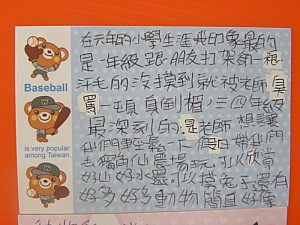 在六年的小學生涯我印象最的
是一年級跟朋友打架師一根
汗毛的沒摸到就被老師臭
罵一頓真倒楣,三四年級
最深刻的是老師想讓
我們輕鬆一下假日帶我們
去獨角仙農場玩可以欣賞
好山好水還可以摸兔子還有
好多好多動物簡直好像
Baseball
is very popular
among Taiwan.